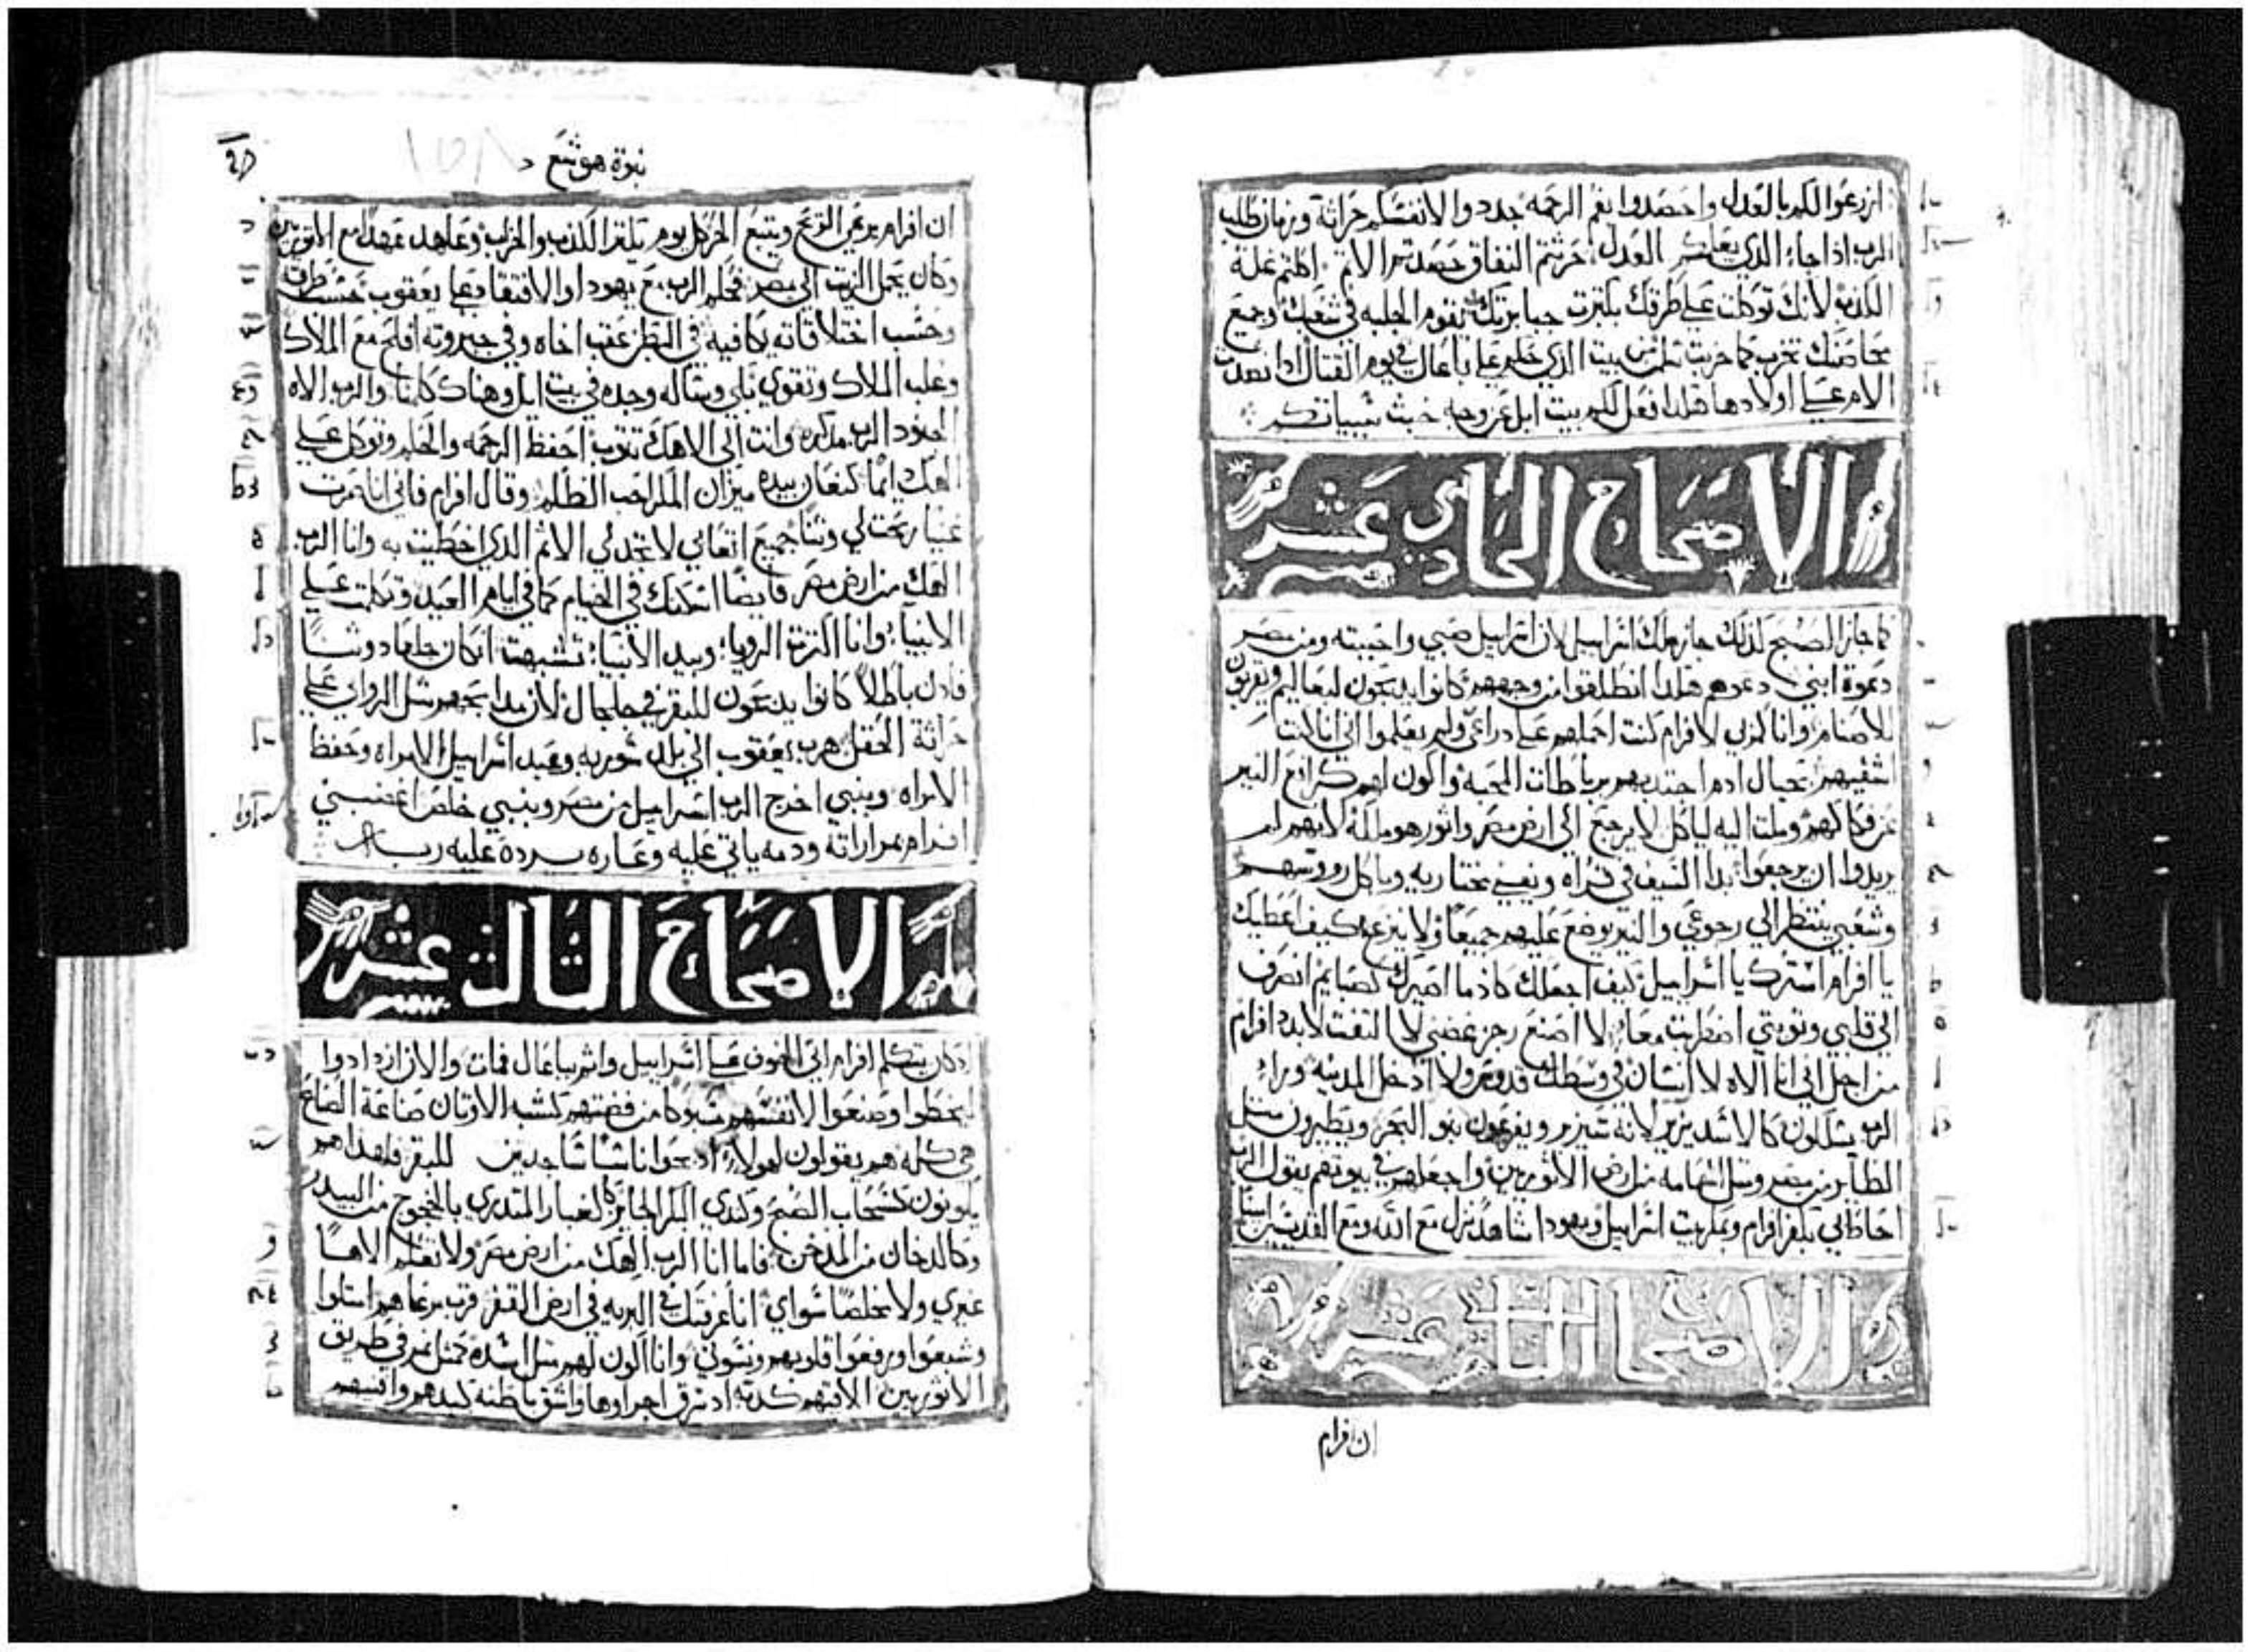 ازرعوا لكم بالعدل واحصدوا بفم الرحمه جددوا لانفسكم حراثة وزمان طلب
الرب اذا جاء الذي يعلمكم العدل حرثتم النفاق حصدتم الاثم اكلتم غلة
الكذب لانك توكلت على طرقك بكثرت جبابرتك تقوم الجلبه في شعبك وجميع
محاصنك تخرب كما خربت بيت الذي حكم على باعال في يوم القتال اذا
الام على اولادها هكذا فعل لكم بيت ايل عن وجه خبث سياتكم
الاصحاح الحادي عشر
كما جاز الصبح كذلك جاز ملك اسراييل لان اسراييل صبي واحببته ومن مصر
دعوة ابني دعوهم هكذا انطلقوا من وجههم كانوا يدبحون لبعاليم ويقربون
للاصنام وانا كمربي لافرام كنت احملهم على دراعي ولم يعلموا اني انا كنت
اشفيهم بحبال ادم اجتدبهم برباطات المحبه واكون لهم كرافع النير
عن فكاكهم وملت اليه لياكل لا يرجع الى ارض مصر واثور هو ملكه لانهم لم
يريدوا ان يرجعوا بدا السيف في قراه ويفني مختاريه وياكل رووسهم
وشعبي ينتظر الي رجوعي والنير يوضع عليهم جميعا ولا ينزع كيف اعطيك
يا افرام استرك يا اسراييل كيف اجعلك كادما اصيرك كصبايم انصرف
الي قلبي وتوبتي اضطربت معا لا اصنع رجز غضبي لا التفت لابدد افرام
من اجل اني انا الاله لا انسان في وسطك قدوس ولا ادخل المدينه وراء
الرب يسلكون كالاسد يزير لانه سيزير ويفزعون بنو البحر ويطيرون مثل
الطاير من مصر ومثل الحمامه من ارض الاثوريين واجعلهم في بيوتهم يقول الرب
احاط بي بكفر افرام وبمكر بيت اسراييل ويهودا شاهد نزل مع الله ومع القديسين
الاصحاح الثاني عشر
ان افرام
نبوة هوشع
ان افرام يرعي الريح ويتبع الحر كل يوم يكثر الكذب والخراب وعاهد عهدا مع الاثوريين
وكان يحمل الزيت الي مصر فحكم الرب مع يهودا والافتقاد على يعقوب حسب طرقه
وحسب اختلاقاته يكافيه في البطن عقب اخاه وفي جبروته افلح مع الملاك
وغلب الملاك وتقوي بكي وساله وجده في بيت ايل وهناك كلمنا والرب الاه
الجنود الرب مدكره وانت الى الاهك تتوب احفظ الرحمه والحكم وتوكل على
الهك انما كنعان بيده ميزان المكر احب الظلم وقال افرام فاني انا صرت
غنيا ربحت لي وثنا جميع اتعابي لا تجد لي الاثم الذي اخطيت به وانا الرب
الهك من ارض مصر فايضا اسكنك في الخيام كما في ايام العيد وتكلمت على
الانبياء وانا اكثرت الرويا وبيد الانبياء تشبهت ان كان جلعاد وثنا
فادن باطلا كانوا يدبحون للبقر في جلجال لان مدابحهم مثل الروابي على
حراثة الحقل هرب يعقوب الى بلد سوريه وتعبد اسراييل لامراه وحفظ
لامراه وبنبي اخرج الرب اسراييل من مصر وبنبي خلص اغضبني
افرام بمراراته ودمه ياتي عليه وعاره يرده عليه ربه
الاصحاح الثالث عشر
اد كان يتكلم افرام اتى الخوف على اسراييل واثم بباعال فمات والان ازدادوا
ليخطوا وصنعوا لانفسهم مسبوكا من فضتهم كشبه الاوتان صناعة الصناع
هي كله هم يقولون لهولاء ادبحوا ناسا ساجدين للبقر فلهذا هم
يكونون كسحاب الصبح وكندي البكر الجايز كالغبار المتدري بالعجوج من البيدر
وكالدخان من المدخن فاما انا الرب الهك من ارض مصر ولا تعلم الاها
غيري ولا مخلصا سواي انا عرفتك في البريه في ارض القفر قرب مرعاهم امتلوا
وشبعوا ورفعوا قلوبهم ونسوني وانا اكون لهم مثل اسدة كمثل نمر في طريق
الاثوريين الاقيهم كدبه اد سرق اجراوها واشق باطنه كبدهم وافنيهم